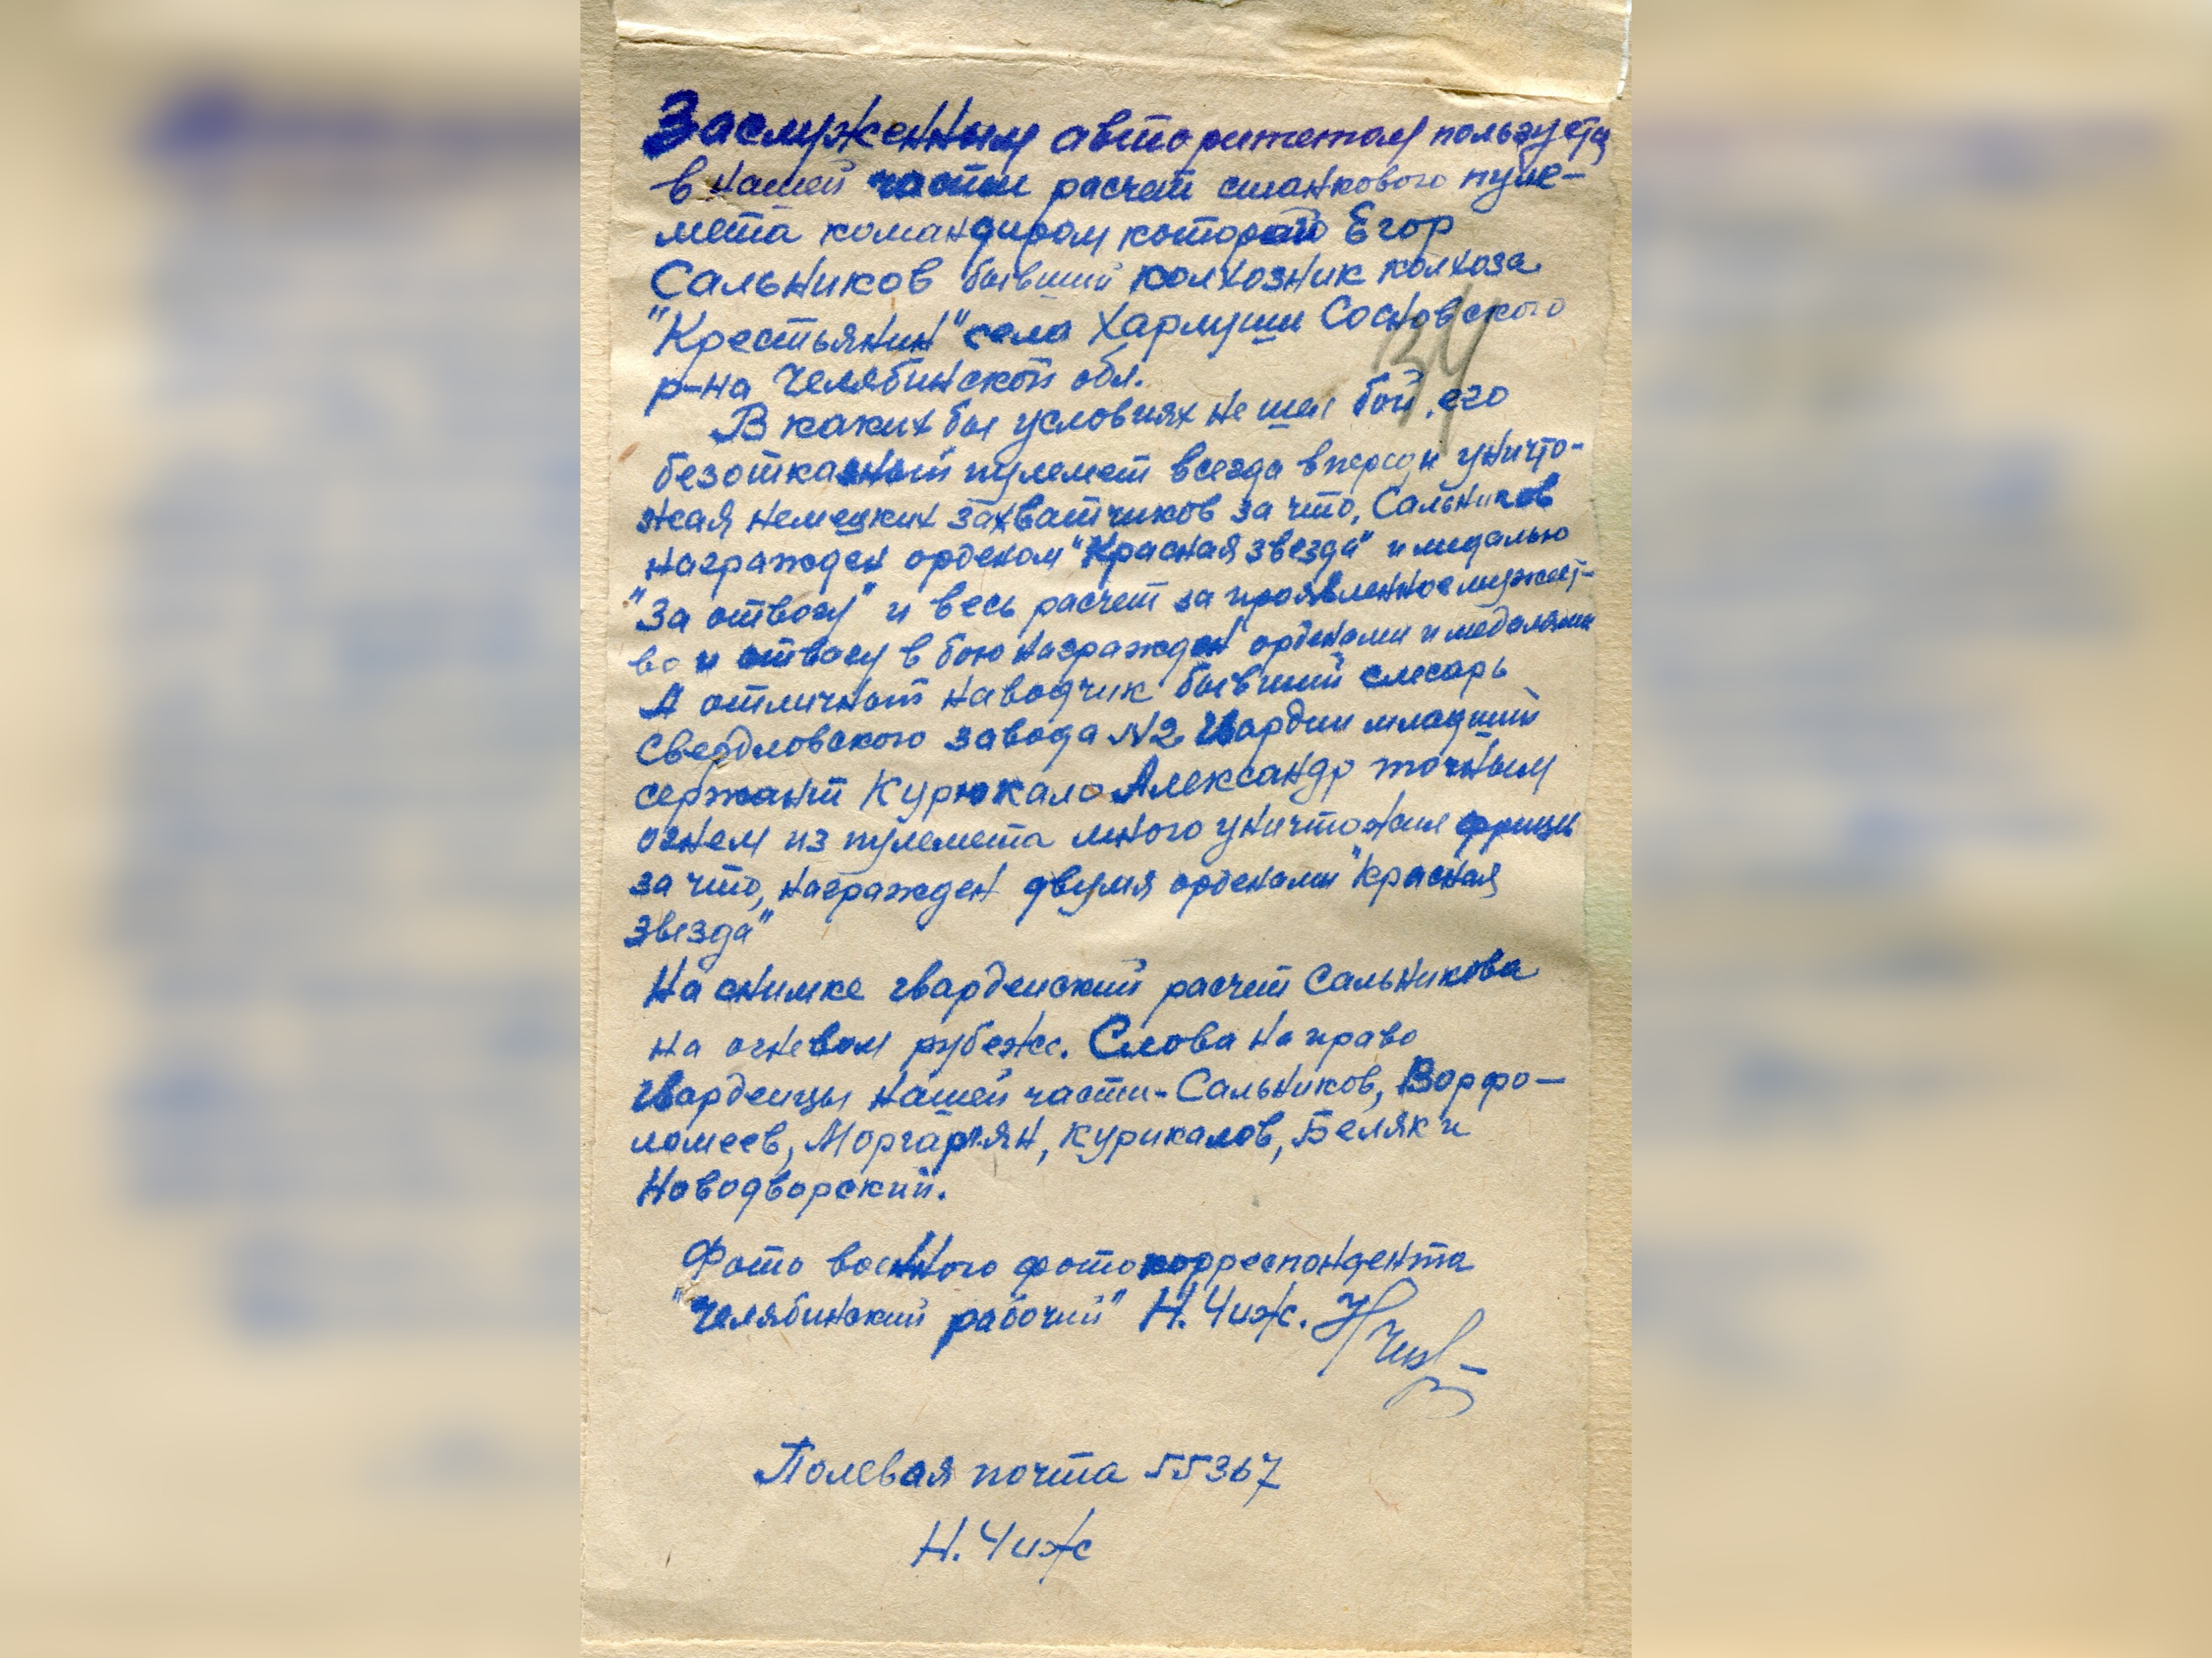 Заслуженным авторитетом пользуется
в нашей части расчет станкового пуле-
мета командиром которого Егор
Сальников бывший колхозник колхоза
"Крестьянин" села Хармуши Сосновского
р-на Челябинской обл.
34
В каких бы условиях не шел бой, его
безотказный пулемет всегда впереди уничто-
жая немецких захватчиков за что, Сальников
награжден орденом "Красная звезда" и медалью
"За отвагу" и весь расчет за проявленное мужест-
во и отвагу в бою награжден орденами и медалями
А отличный наводчик бывший слесарь
Свердловского завода №2 Гвардии младший
сержант Курюкало Александр точным
огнем из пулемета много уничтожил фрицы
за что, награжден двумя орденами "Красная
звезда"
На снимке гвардейский расчет Сальникова
на огневом рубеже. Слева на право
Гвардейцы нашей части - Сальников, Варфо-
ломеев, Моргарян, Курикалов, Беляк и
Новодворский.
Фото военного фотокорреспондента
"Челябинский рабочий" Н. Чиж. НЧиж
Полевая почта 55367
Н. Чиж